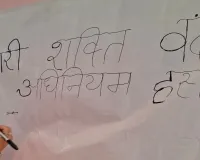 री शक्ति वं
अधिनियम हस्